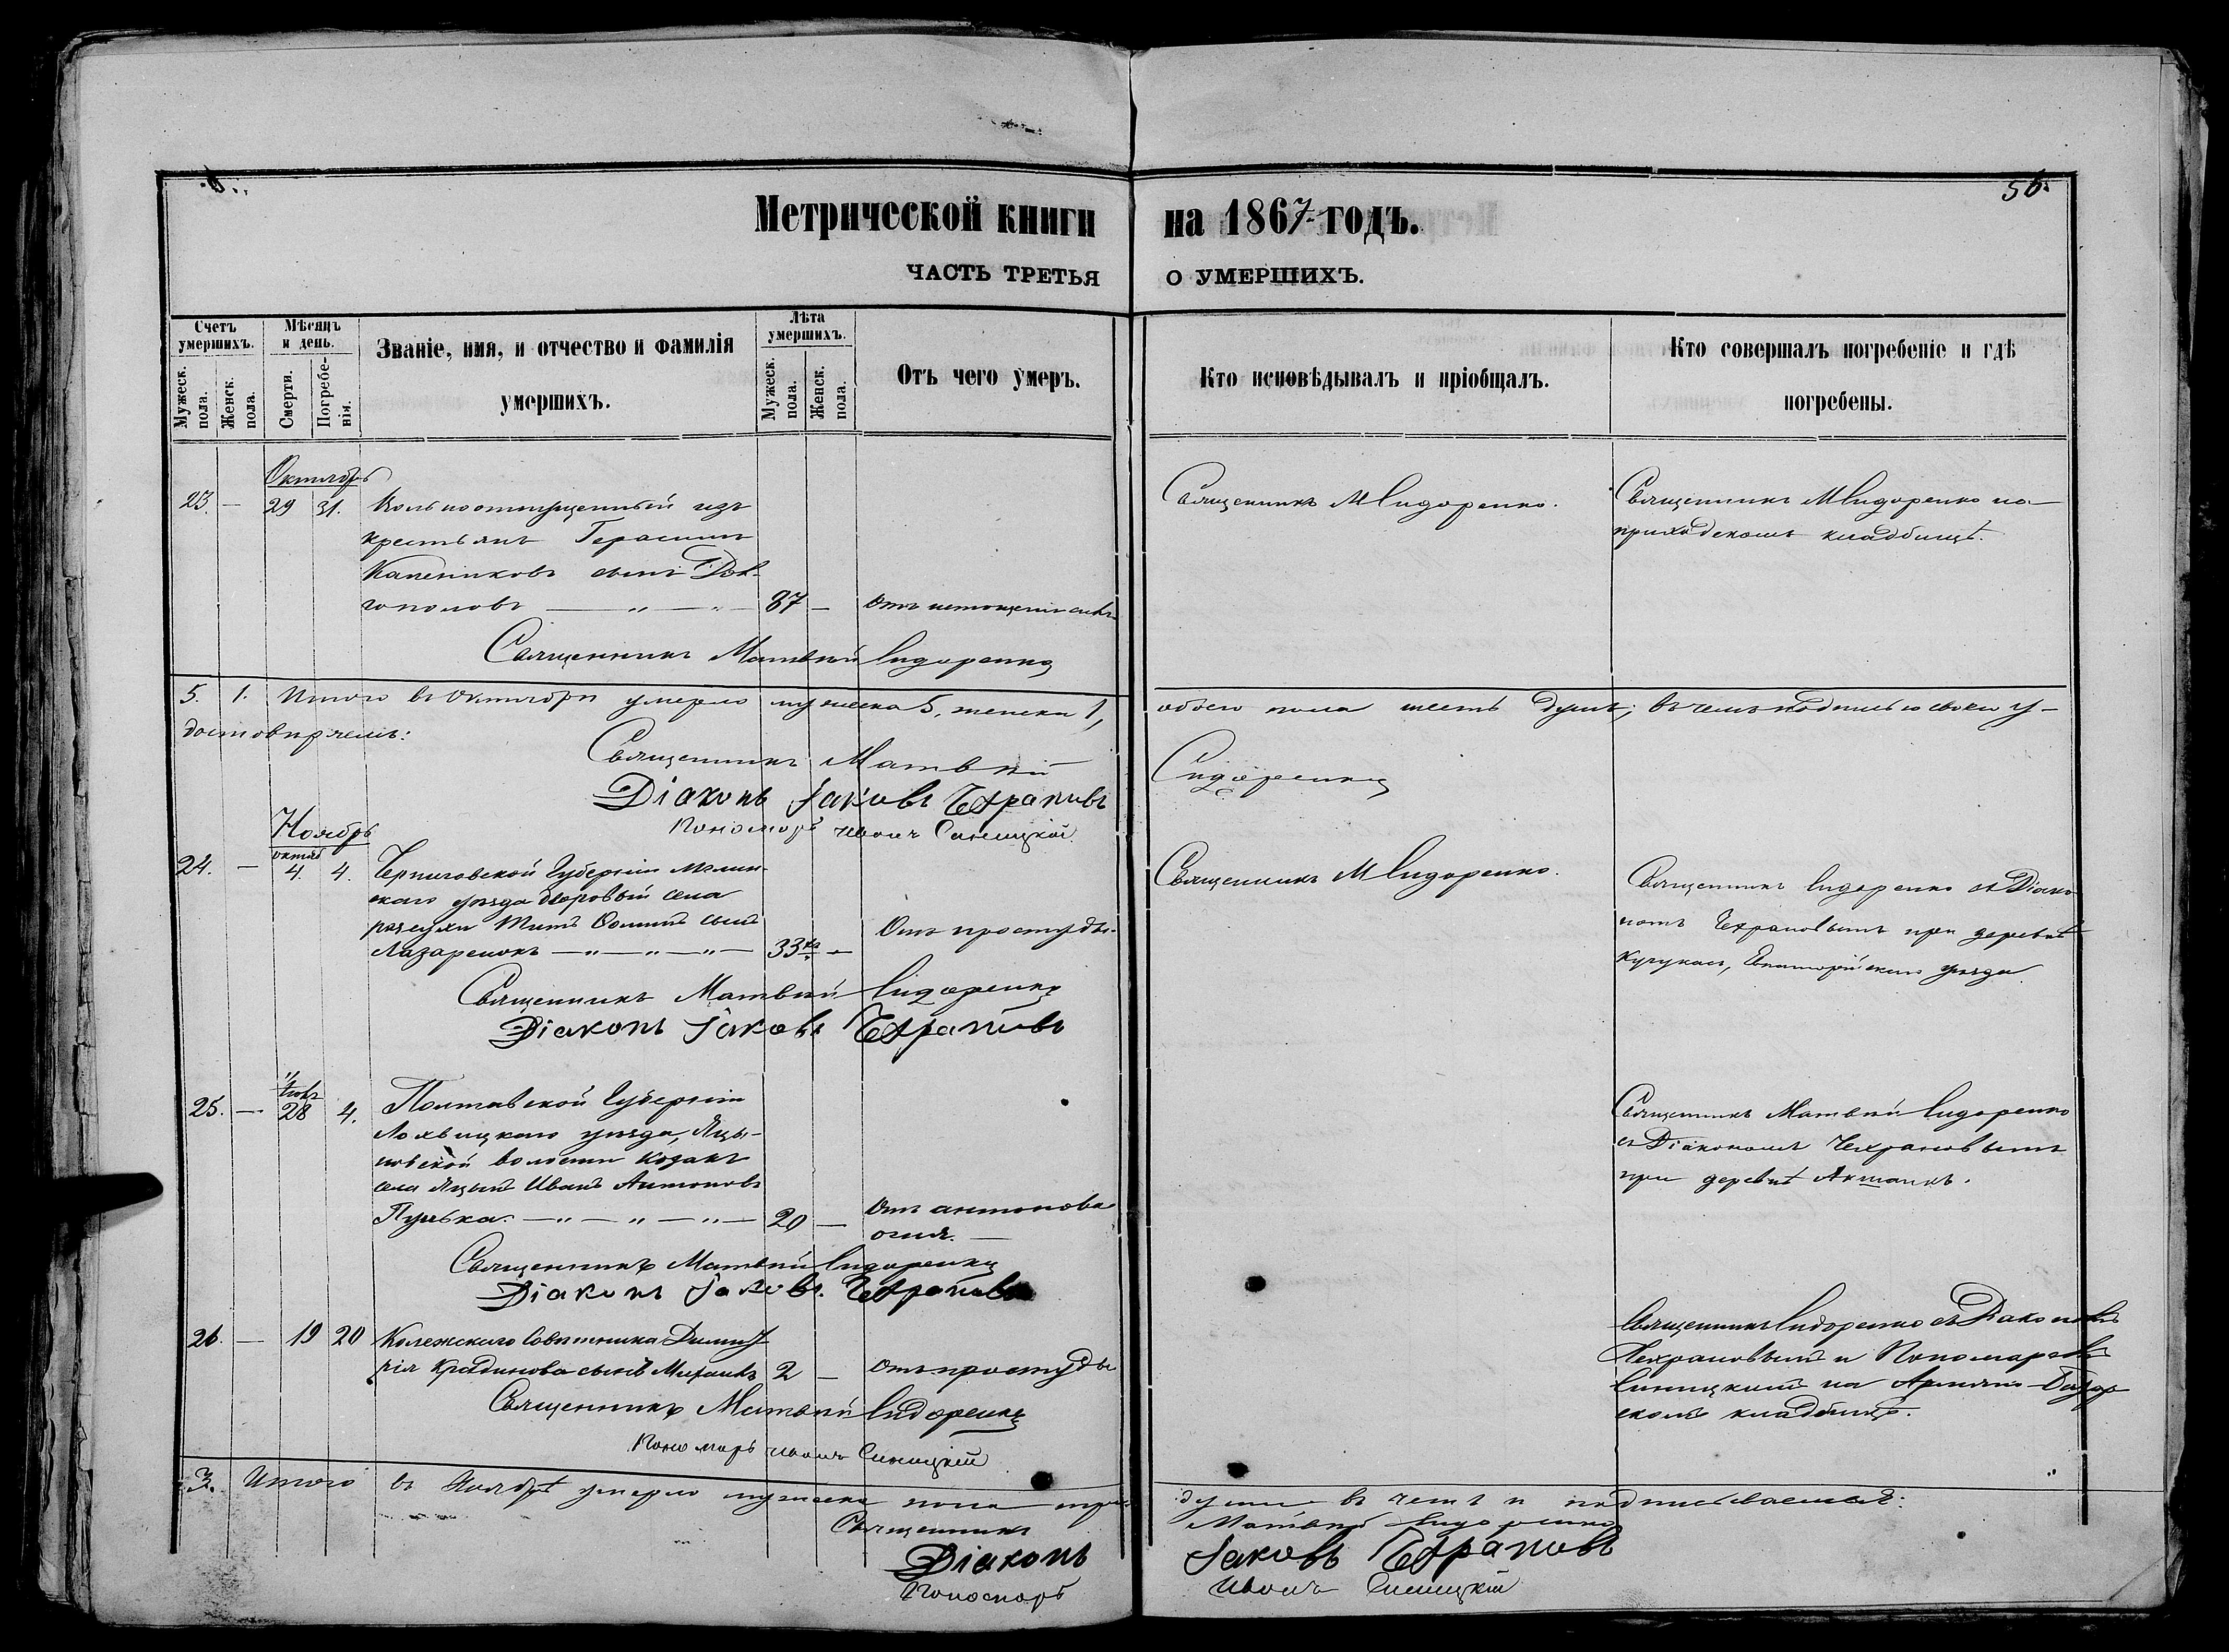 56.
Метрической книги на 1867 годъ.
ЧАСТЬ ТРЕТЬЯ О УМЕРШИХЪ.
Счетъ умершихъ.
Мужеск. пола.
Женск. пола.
Мѣсяцъ и день.
Смерти.
Погребенія.
Званіе, имя, и отчество и фамилія
умершихъ.
Лѣта умершихъ.
Мужеск. пола.
Женск. пола.
Отъ чего умеръ.
Кто исповѣдывалъ и пріобщалъ.
Кто совершалъ погребеніе и гдѣ
погребены.
Октябрь
23. — 29 31. Вольноотпущенный изъ
крестьянъ Герасимъ
сынъ Дол-
гополовъ — " — " — 87 — Отъ истощенія силъ
Священникъ М Сидоренко.
Священникъ М Сидоренко на
приходскомъ кладбищѣ.
Священникъ Матвѣй Сидоренко
5. 1. Итого въ Октябрѣ умерло мужеска 5, женска 1, обоего пола шесть душъ; въ чемъ подписью своею у-
достовѣряемъ:
Священникъ Матвѣй Сидоренко
Діаконъ Іаковъ Чехрановъ
Пономарь Иванъ Синицкій
Ноябрь
24. — октяб 4. 4. Черниговской Губерніи Мглин-
скаго уѣзда дворовый села
Титъ Ѳоминъ сынъ
Лазаренокъ — " — " — " — 33 — Отъ простуды.
Священникъ М Сидоренко.
Священникъ Сидоренко съ Діако-
номъ Чехрановымъ при деревнѣ
Евпаторійскаго уѣзда
Священникъ Матвѣй Сидоренко
Діаконъ Іаковъ Чехрановъ
25. — 28 4. Полтавской Губерніи
Лохвицкаго уѣзда, Яцы-
новской волости козакъ
села Яцынъ Иванъ Антоновъ
Пулька. — " — " — " — 20 — Отъ антонова
огня. —
Священникъ Матвѣй Сидоренко
съ Діакономъ Чехрановымъ
при деревнѣ
Священникъ Матвѣй Сидоренко
Діаконъ Іаковъ Чехрановъ
26. — 19 20 Колежскаго Совѣтника Димит-
рія сынъ Михаилъ 2 — Отъ простуды
Священникъ Сидоренко съ Діакономъ
Чехрановымъ и Пономаремъ
Синицкимъ на Армяно-Базар-
скомъ кладбищѣ.
Священникъ Матвѣй Сидоренко
Пономарь Иванъ Синицкій
3. Итого въ Ноябрѣ умерло мужеска пола три души въ чемъ и подписываемся:
Священникъ Матвѣй Сидоренко
Діаконъ Іаковъ Чехрановъ
Пономарь Иванъ Синицкій